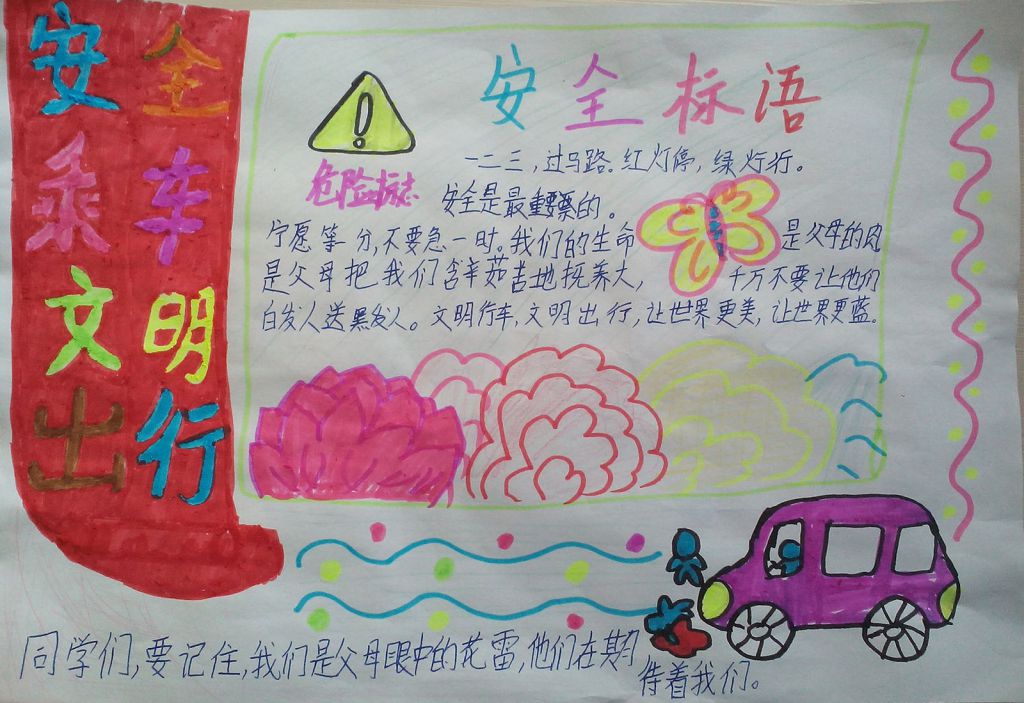 安全
乘车
文明
出行
安全标语
危险标志
一二三，过马路。红灯停，绿灯行。
安全是最重要的。
宁愿等分，不要急一时。我们的生命是父母的肉
是父母把我们含辛茹苦地抚养大，千万不要让他们
白发人送黑发人。文明行车，文明出行，让世界更美，让世界更蓝。
同学们，要记住，我们是父母眼中的花雷，他们在期
待着我们。